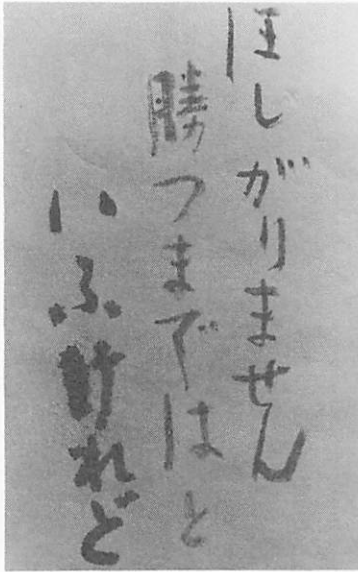 ほしがりません
勝つまではと
いふけれど